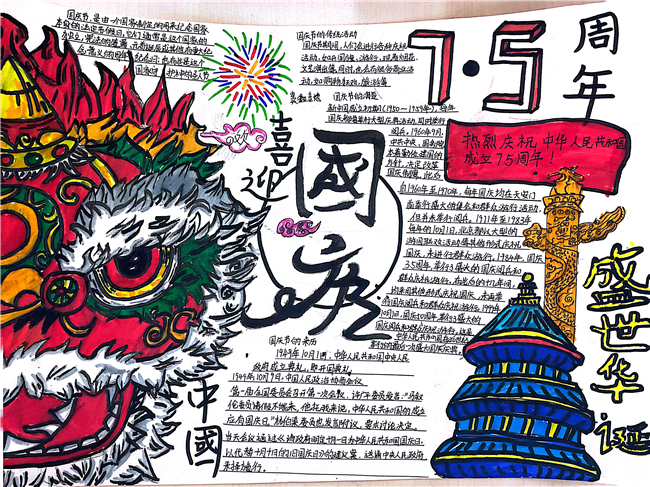 国庆节,是由一个国家制定的用来纪念国家
本身的法定节假日,它们通常是这个国家的
独立、宪法的签署、元首诞辰或其他有重大纪
念意义的周年纪念日;
国庆节的传统活动
国庆节期间,人们会进行各种庆祝
活动,
文艺演出等,同时,也会有很多商业活
动,如购物狂欢、旅游等
7·5
周年
热烈庆祝中华人民共和国
成立75周年!
喜迎
國庆
新中国成立初期(1950—1959年),每年
国庆都举行大型庆典活动,同时举行
阅兵。1960年9月,
中共中央、国务院
本着勤俭建国的
方针,决定改革
国庆制度。此后
自1960年至1970年,每年国庆均在天安门
前举行盛大的集会和群众游行活动,
但并未举行阅兵。1971年至1983年,
每年的10月1日,北京都以大型的
游园联欢活动等其他形式庆祝
国庆,未进行群众游行。1984年,国庆
35周年,举行了盛大的国庆阅兵和
群众庆祝游行。在此后的十几年间,
均采用其他形式庆祝国庆,未再举
行国庆阅兵和群众庆祝游行。1999年
10月1日,国庆50周年,举行了盛大的
国庆阅兵和群众庆祝游行。这是
中华人民共和国在20世纪
举行的最后一次盛大国庆庆典。
盛世华诞
中國
国庆节的来历
1949年10月1日,中华人民共和国中央人民
政府成立典礼,即开国典礼。
1949年10月9日,中国人民政治协商会议
第一届全国委员会召开第一次会议,许广平委员发言:“马叙
伦委员请假不能来,他托我来说,中华人民共和国的成立
应有国庆日。”林伯渠委员也发言附议,要求讨论决定。
当天会议通过《请政府明定十月一日为中华人民共和国国庆日,
以代替十月十日的旧国庆日》的建议案,送请中央人民政府
采择施行。